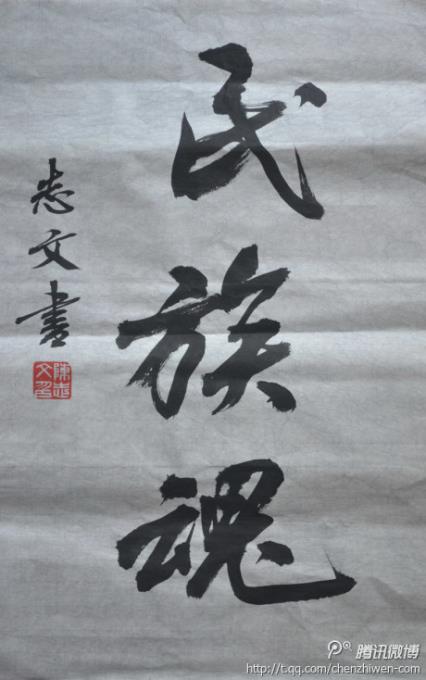 民族魂
志文書
陳志文印
腾讯微博
http://t.qq.com/chenzhiwen-com